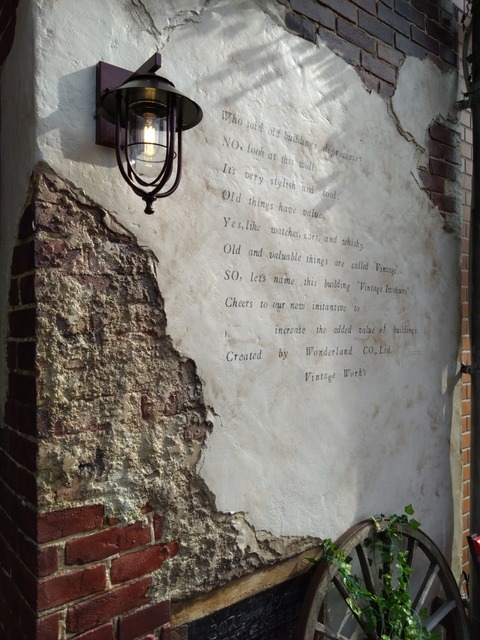 Who said old buildings depreciate?
NO, look at this wall.
It's very stylish and cool.
Old things have value.
Yes, like watches, cars, and whisky.
Old and valuable things are called 'Vintage'.
SO, let's name this building 'Vintage
Cheers to our new initiative to
increase the added value of buildings.
Created by Wonderland CO., Ltd.
Vintage Work's